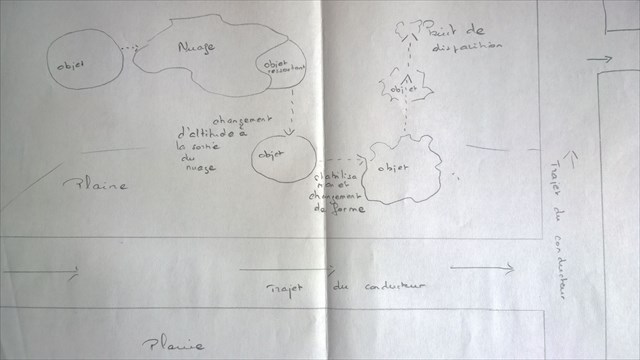 objet
Nuage
objet
ressortant
Point de
disparition
objet
changement
d'altitude à
la sortie
du
nuage
objet
objet
stabilise
et
changement
de forme
Plaine
Trajet du conducteur
Trajet du conducteur
Plaine